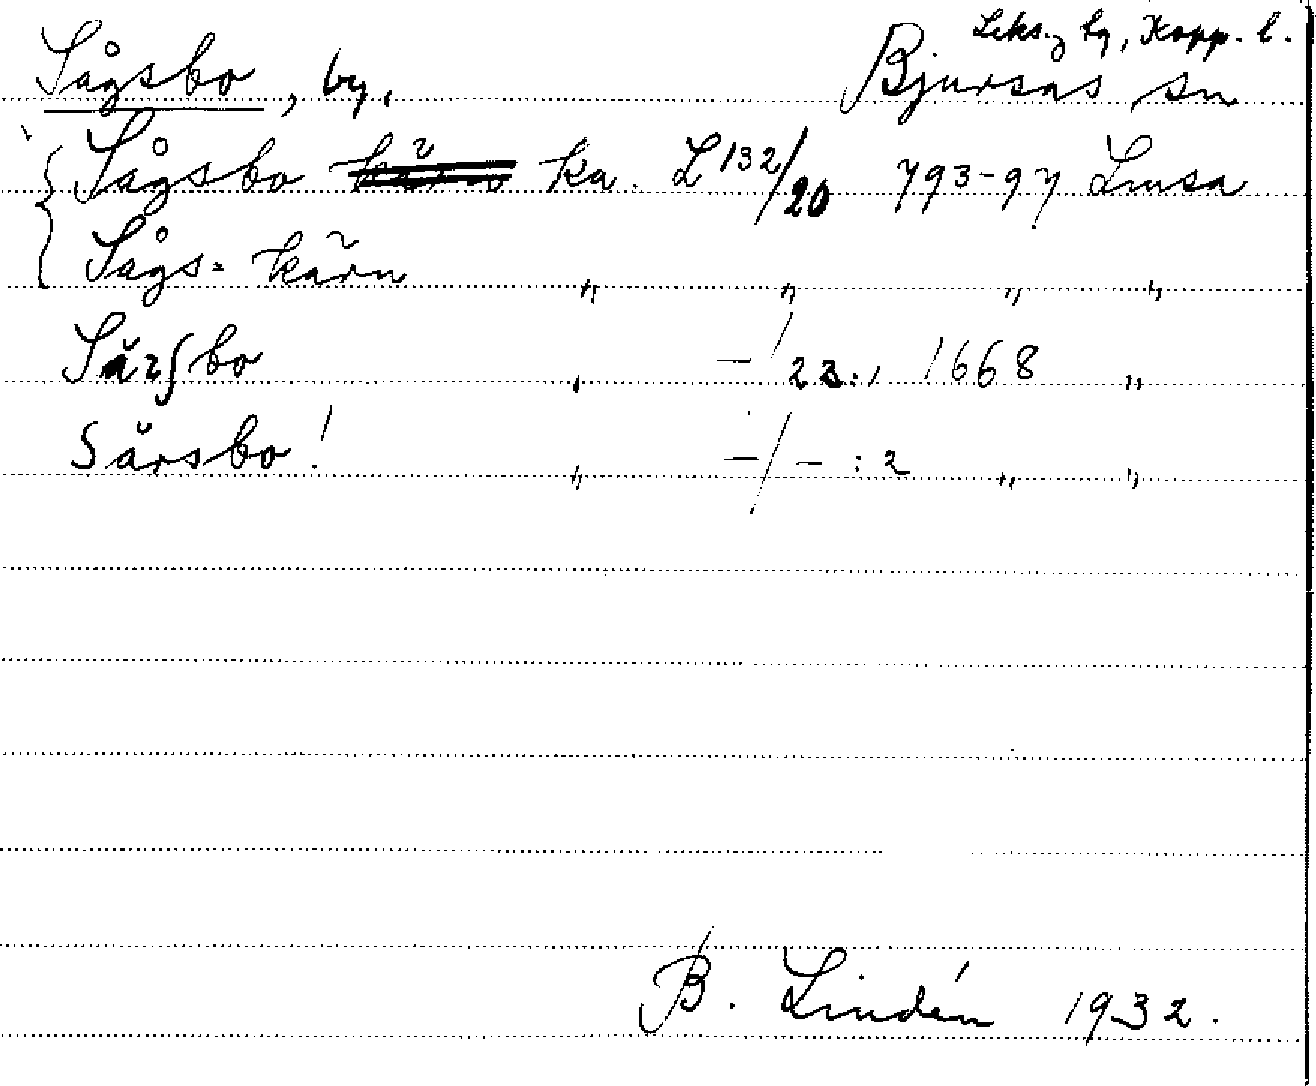 Leks. hg, Kopp. l.
Sågsbo, by, Bjursås sn
Sågsbo ka. L 132/20 793-97 Lmsa
Sågs= kärn " " " "
Särsbo " -/23:1 1668 "
Särsbo! " -/-:2 " "
B. Lindén 1932.